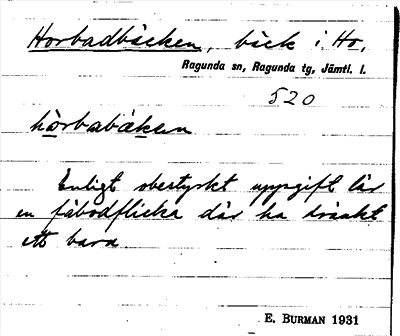 Horbadbäcken, bäck i Ho,
Ragunda sn, Ragunda tg, Jämtl. l.
520
hòrbabäken
Enligt obestyrkt uppgift lär
en fäbodflicka där ha dränkt
ett barn
E. BURMAN 1931